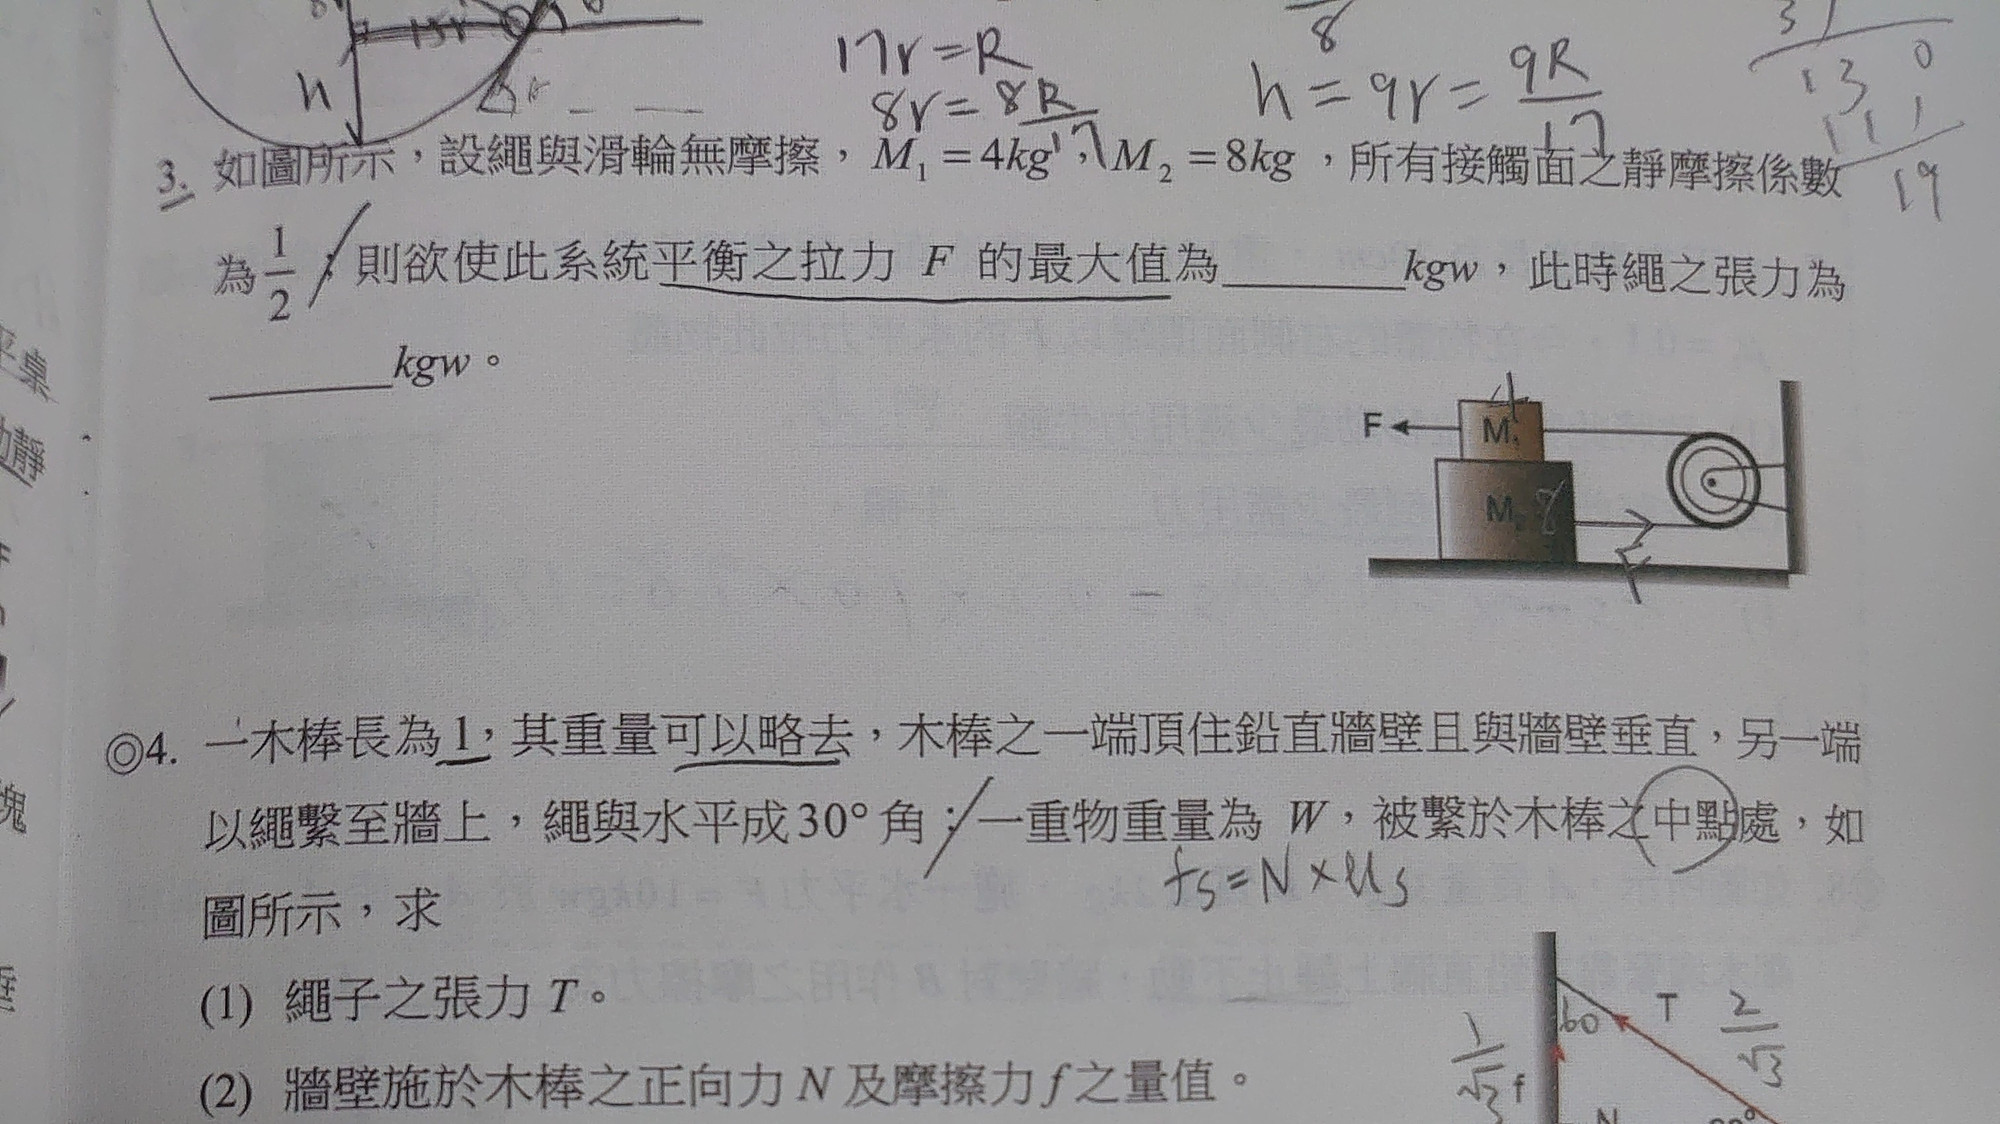 15r
h
17r=R
8r=8R/17
8
h=9r=9R/17
3. 如圖所示，設繩與滑輪無摩擦，M₁=4kg，M₂=8kg，所有接觸面之靜摩擦係數
19
為1/2；則欲使此系統平衡之拉力 F 的最大值為______kgw，此時繩之張力為
______kgw。
4
F M₁
M₂ 8
F
◎4. 一木棒長為1，其重量可以略去，木棒之一端頂住鉛直牆壁且與牆壁垂直，另一端
以繩繫至牆上，繩與水平成30°角；一重物重量為 W，被繫於木棒之中點處，如
fs=N×μs
圖所示，求
(1) 繩子之張力 T。
60 T 2/√3
1/√3 f
(2) 牆壁施於木棒之正向力 N 及摩擦力 f 之量值。
N
平臬
靜
塊